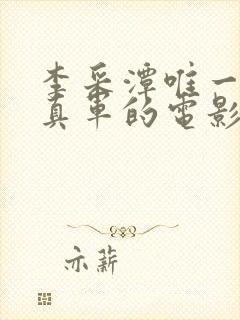 李采潭唯一
真車的電影
亦薪